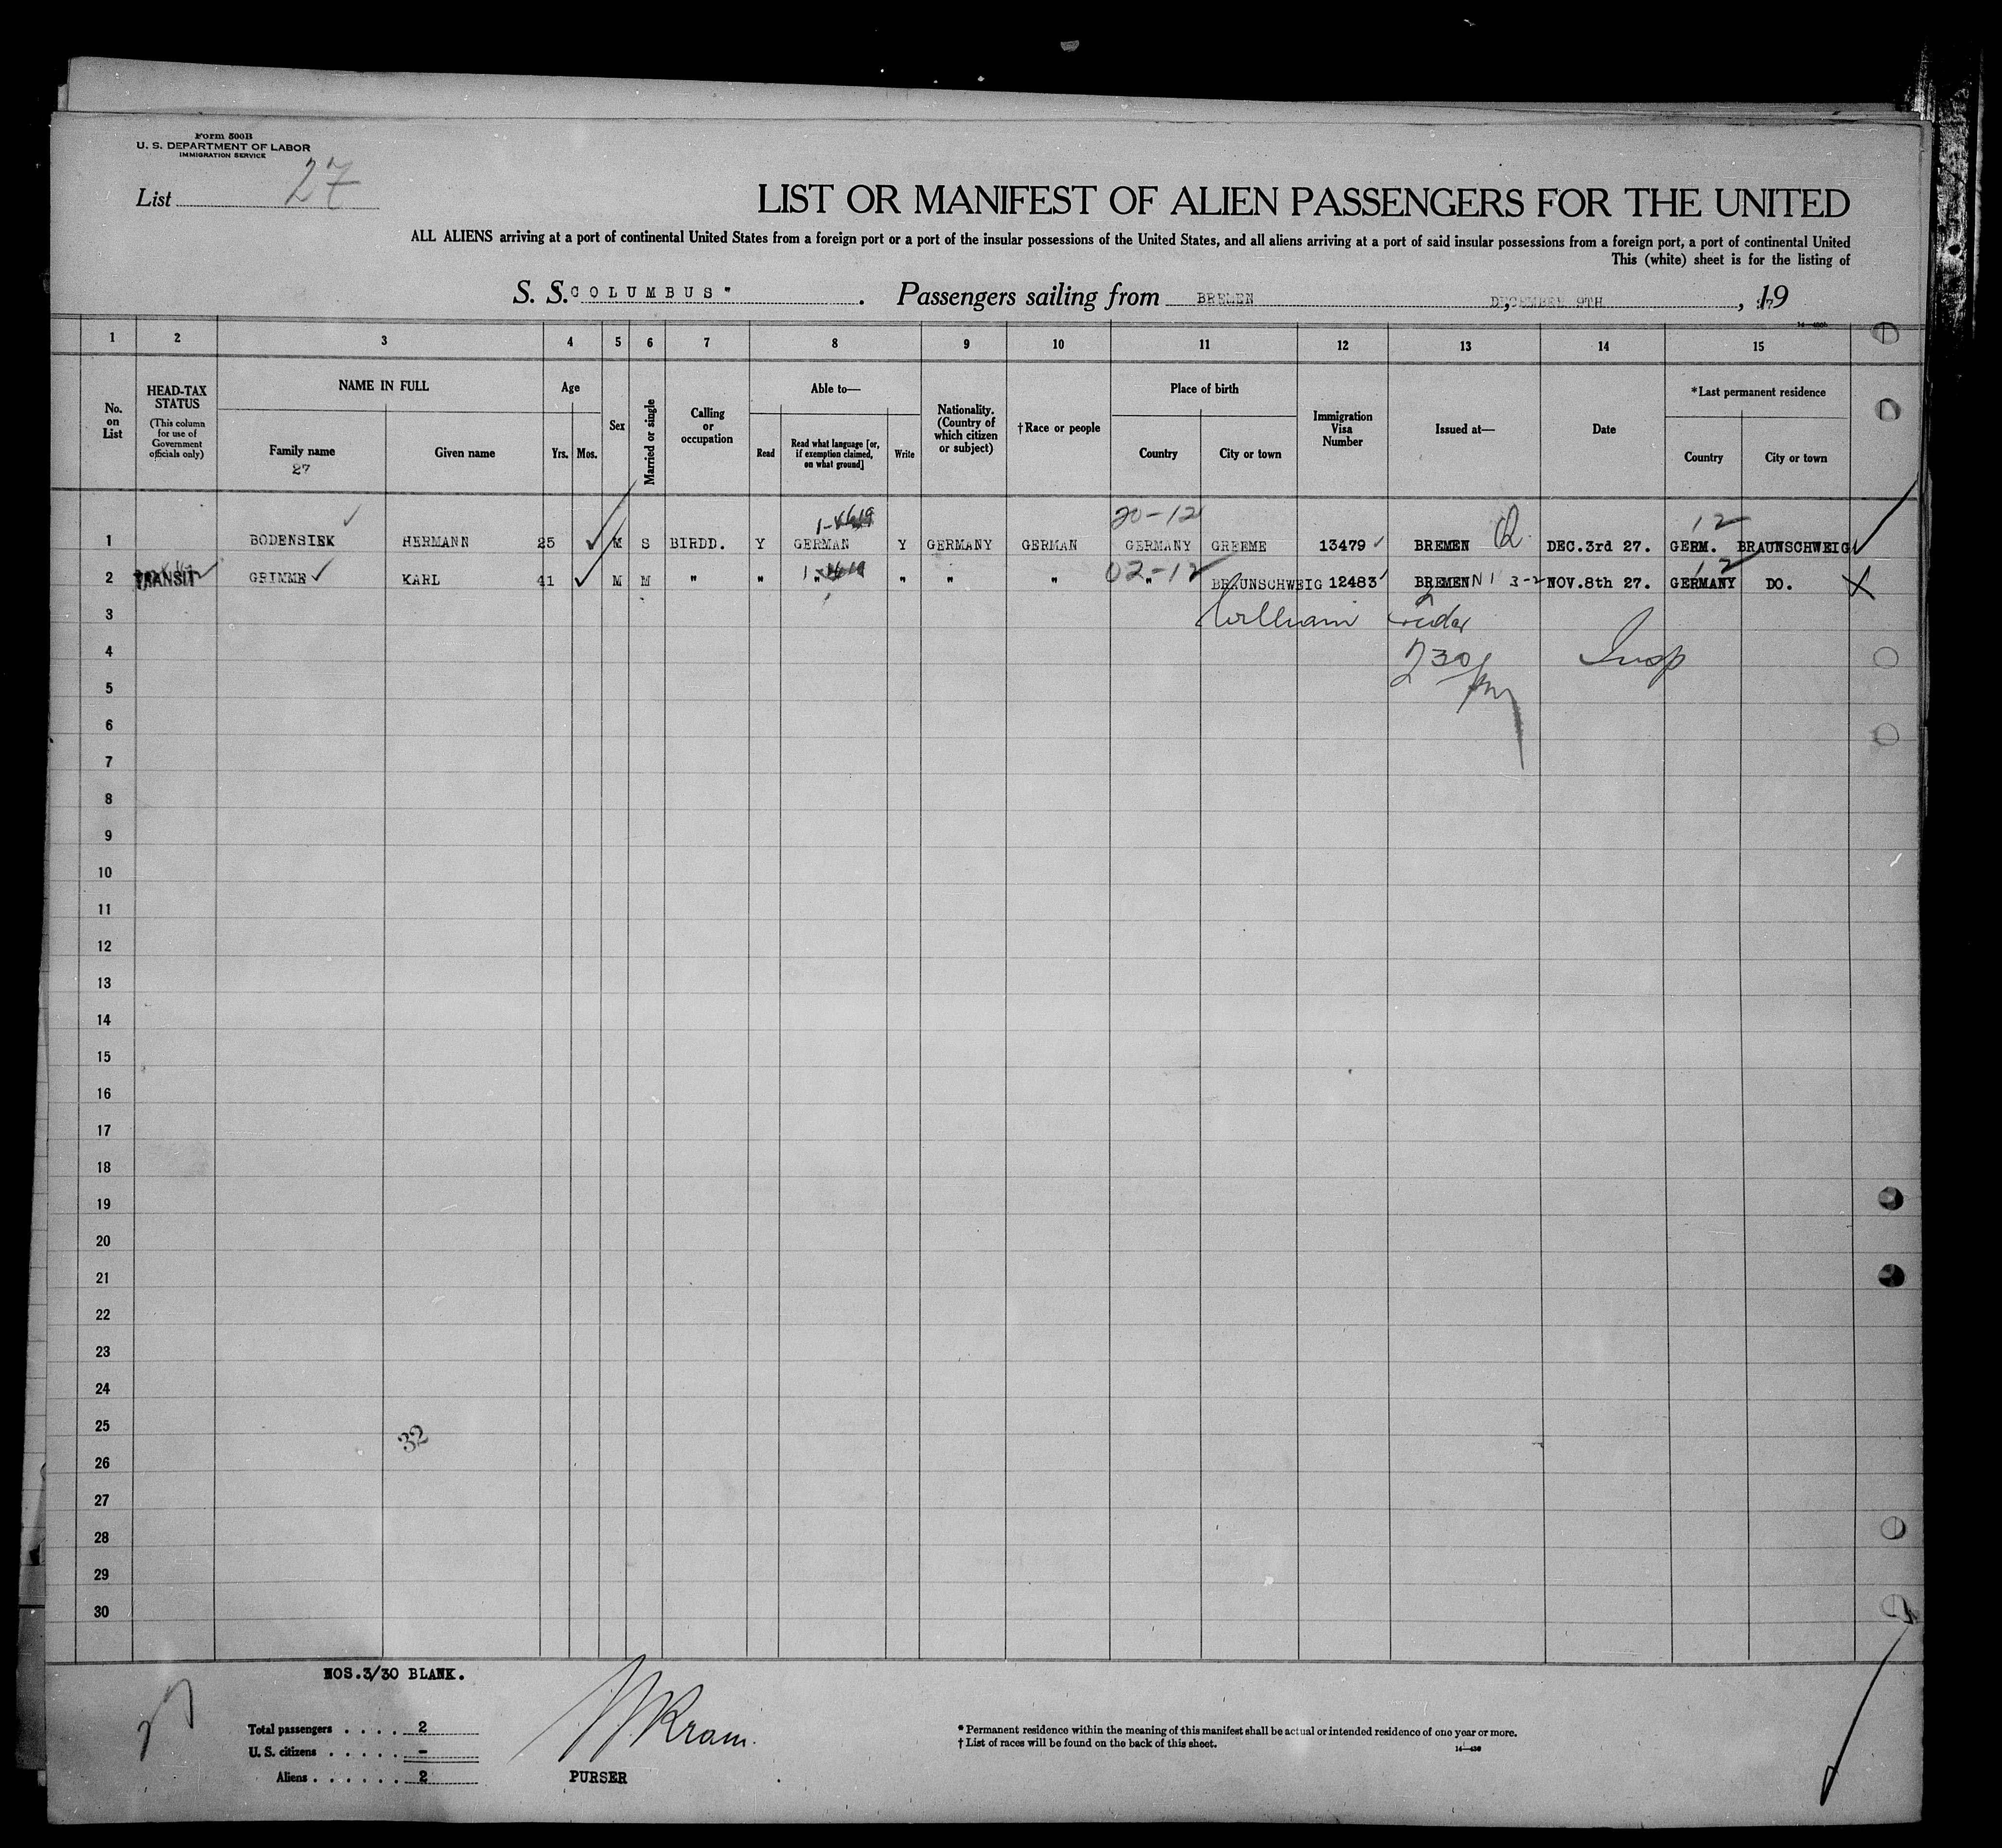 Form 500B
U. S. DEPARTMENT OF LABOR
IMMIGRATION SERVICE
List 27
LIST OR MANIFEST OF ALIEN PASSENGERS FOR THE UNITED
ALL ALIENS arriving at a port of continental United States from a foreign port or a port of the insular possessions of the United States, and all aliens arriving at a port of said insular possessions from a foreign port, a port of continental United
This (white) sheet is for the listing of
S. S. COLUMBUS" . Passengers sailing from BREMEN , DECEMBER 9TH , 19
1 2 3 4 5 6 7 8 9 10 11 12 13 14 15
No. on List
HEAD-TAX STATUS
(This column for use of Government officials only)
NAME IN FULL
Family name
27
Given name
Age
Yrs. Mos.
Sex
Married or single
Calling or occupation
Able to—
Read
Read what language [or, if exemption claimed, on what ground]
Write
Nationality. (Country of which citizen or subject)
†Race or people
Place of birth
Country
City or town
Immigration Visa Number
Issued at—
Date
*Last permanent residence
Country
City or town
20-12 12
1 BODENSIEK HERMANN 25 M S BIRDD. Y GERMAN Y GERMANY GERMAN GERMANY GREEME 13479 BREMEN DEC.3rd 27. GERM. BRAUNSCHWEIG
02-12 12
2 TRANSIT GRIMME KARL 41 M M " " " " " " " BRAUNSCHWEIG 12483 BREMEN NOV.8th 27. GERMANY DO.
3 William
4 230 Insp
5 pm
6
7
8
9
10
11
12
13
14
15
16
17
18
19
20
21
22
23
24
25
32
26
27
28
29
30
NOS.3/30 BLANK.
Total passengers . . . . 2
U. S. citizens . . . . . –
Aliens . . . . . . 2
PURSER
* Permanent residence within the meaning of this manifest shall be actual or intended residence of one year or more.
† List of races will be found on the back of this sheet.